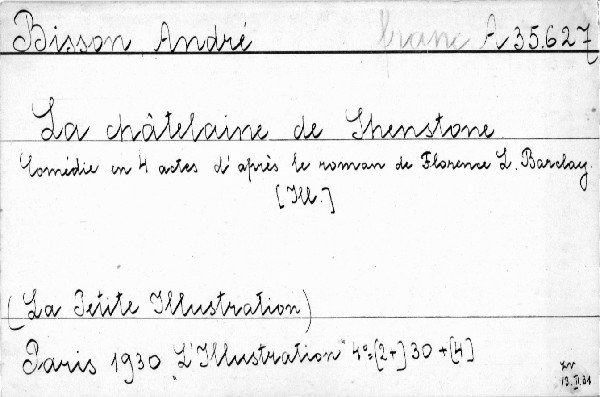 Bisson André franc A 35.627
La châtelaine de Shenstone.
Comédie en 4 actes d'après le roman de Florence L. Barclay.
[Ill.]
(La Petite Illustration)
Paris 1930 „L'Illustration" 4°=[2+] 30 +[4]
13. II. 31